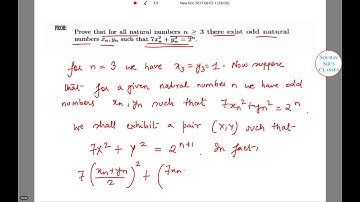 New Doc 2017-08-03 1 (26/30)
PROB:
Prove that for all natural numbers n ≥ 3 there exist odd natural
numbers xₙ, yₙ such that 7xₙ² + yₙ² = 2ⁿ.
SOURAV
SIR'S
CLASSES
for n = 3 we have x₃ = y₃ = 1. Now suppose
that for a given natural number n we have odd
numbers xn, yn such that 7xn² + yn² = 2ⁿ
we shall exhibit a pair (X,Y) such that
7X² + Y² = 2ⁿ⁺¹. In fact,
7((xn+yn)/2)² + (7xn-